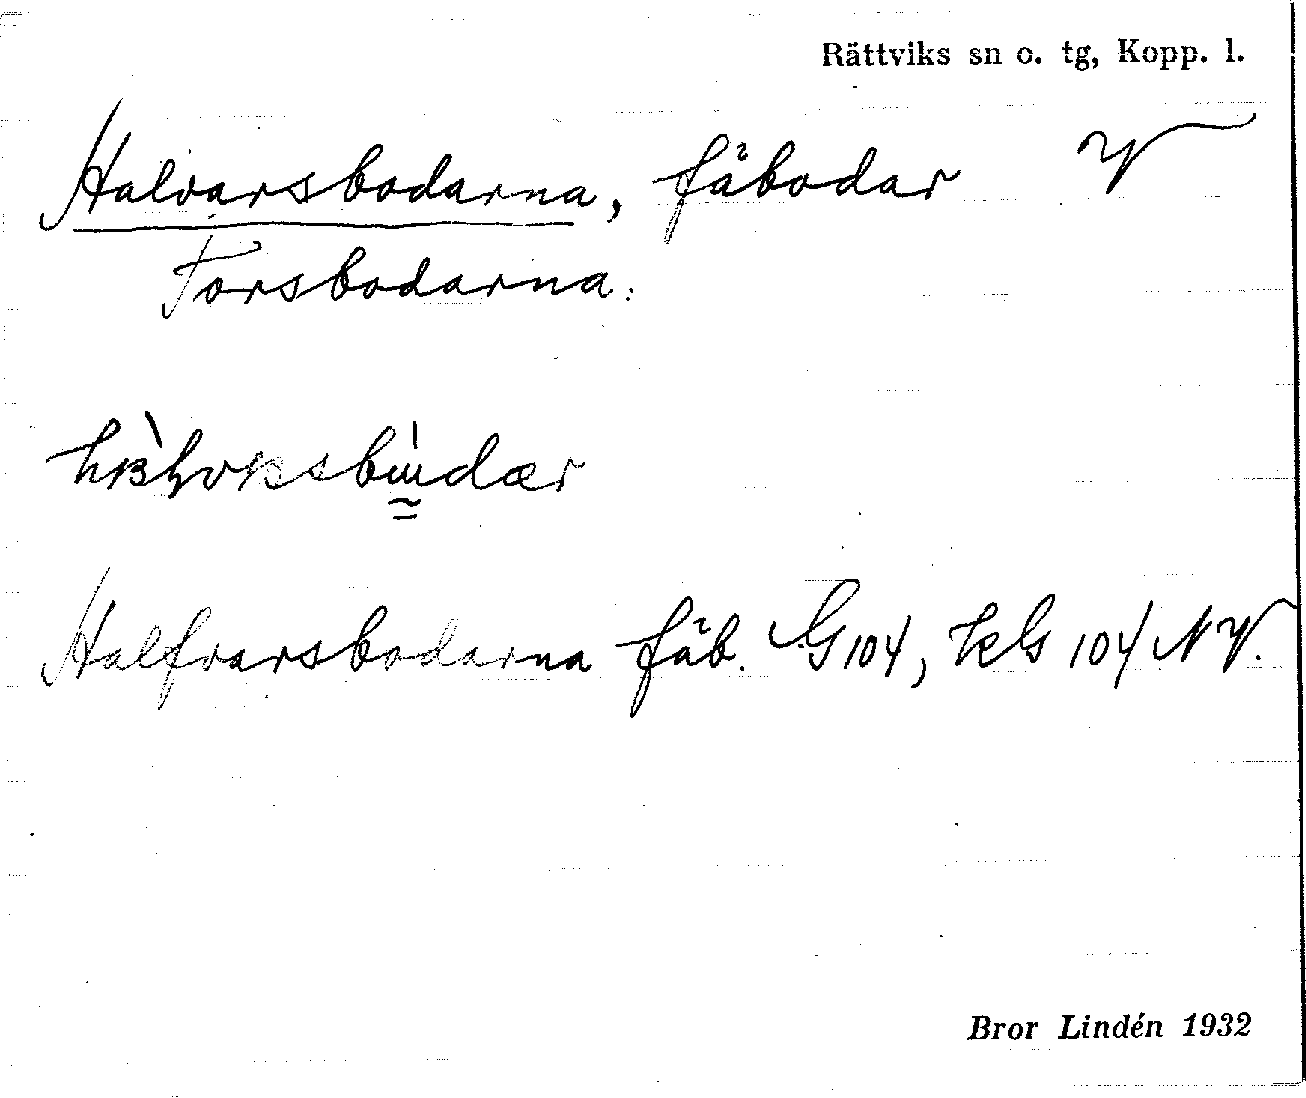 Rättviks sn o. tg, Kopp. l.
Halvarsbodarna, fäbodar
Torsbodarna.
Halfvarsbodarna fäb. G 104, kG 104 NV.
Bror Lindén 1932